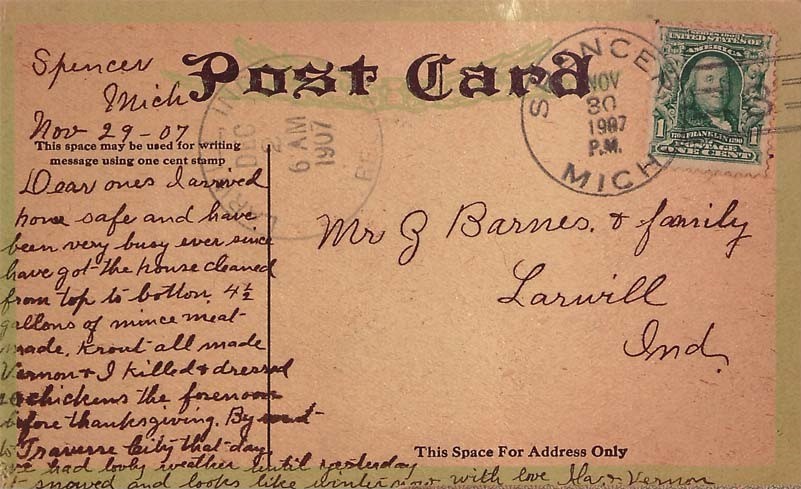 Post Card
Spencer
Mich
Nov 29-07
This space may be used for writing
message using one cent stamp
Dear ones I arrived
home safe and have
been very busy ever since
have got the house cleaned
from top to bottom. 4½
gallons of mince meat
made. Krout all made
Vernon + I killed + dressed
chickens the forenoon
before thanksgiving. By
to Traverse City that day.
we had lovly weather until yesterday
it snowed and looks like winter now with love Ila + Vernon
SPENCER
NOV
30
1907
P.M.
MICH
LARWILL IND.
DEC
2
6 AM
1907
REC
SERIES 1902
UNITED STATES OF
AMERICA
1706 FRANKLIN 1790
POSTAGE
1 ONE CENT 1
Mr G Barnes. & family
Larwill
Ind.
This Space For Address Only